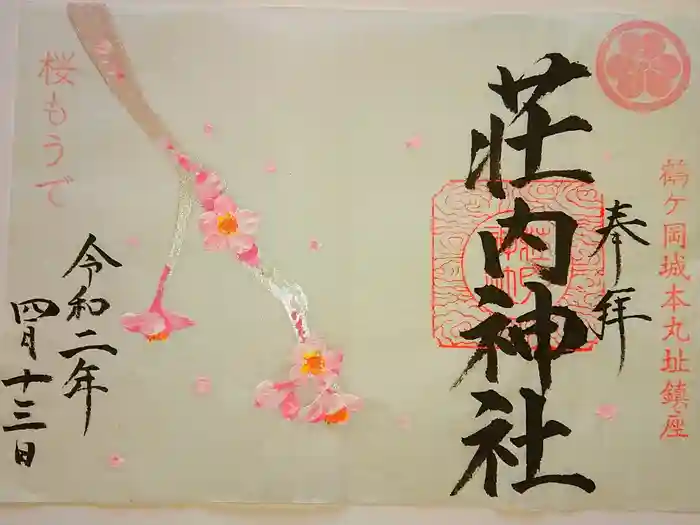 鶴ケ岡城本丸址鎮座
奉拝
荘内神社
桜もうで
令和二年
四月十三日